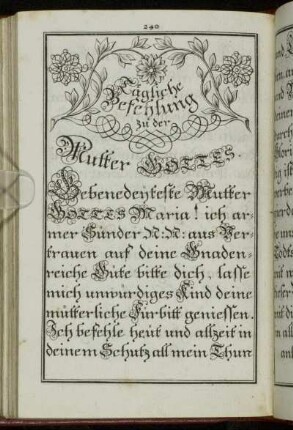 240
Tägliche
Befehlung
zu der
Mutter GOTTES.
Gebenedeyteste Mutter
GOTTES Maria! ich ar-
mer Sünder N: N: aus Ver-
trauen auf deine Gnaden-
reiche Güte bitte dich, lasse
mich unwürdiges Kind deine
mütterliche Fürbitt geniessen.
Ich befehle heüt und allzeit in
deinem Schutz all mein Thun